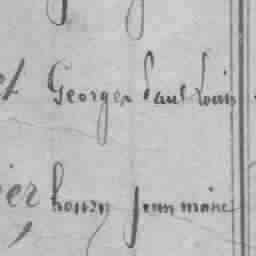 et Georges Paul Louis
ier henry jean marie